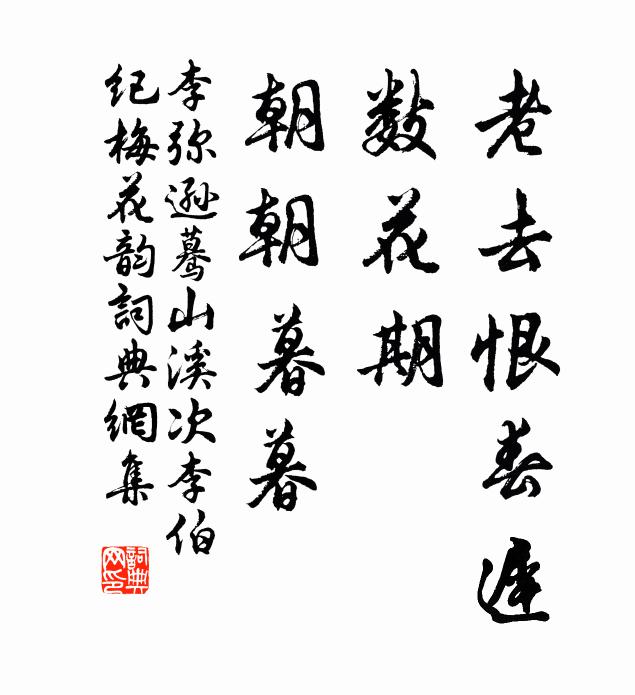 老去恨春遲
數花期
朝朝暮暮
李弥遜驀山溪次李伯
紀梅花韵詞典網集
詞典网印